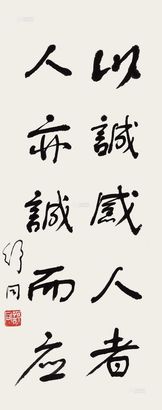 以誠感人者
人亦誠而应
舒同